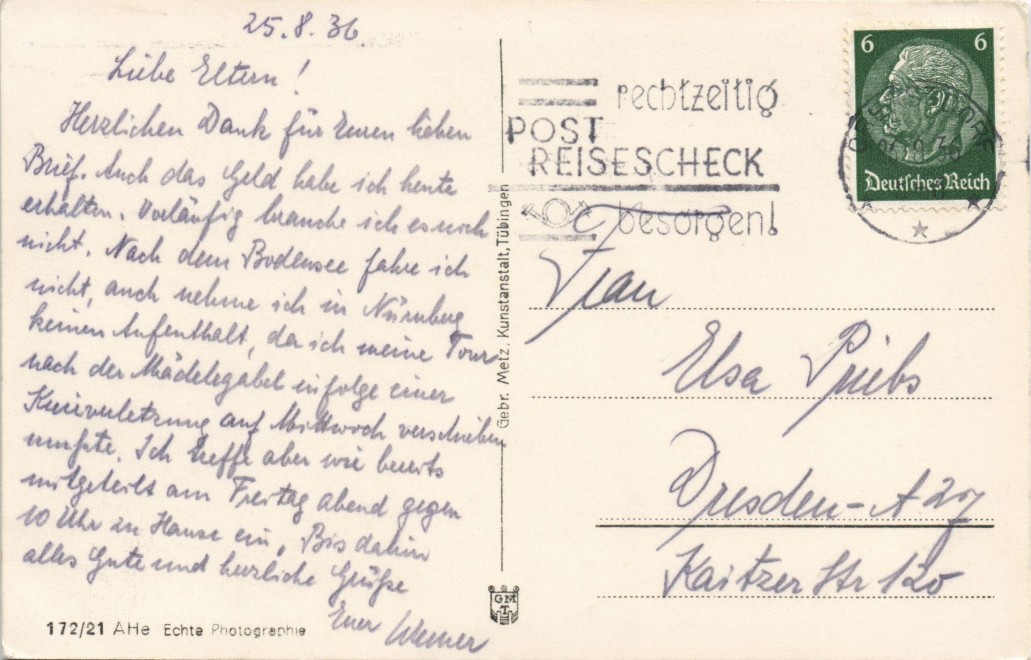 25.8.36
Liebe Eltern!
Herzlichen Dank für Euren lieben
Brief. Auch das Geld habe ich heute
erhalten. Vorläufig brauche ich es noch
nicht. Nach dem Bodensee fahre ich
nicht, auch nehme ich in Nürnberg
keinen Aufenthalt, da ich meine Tour
nach der Mädelegabel infolge einer
Knieverletzung auf Mittwoch verschieben
mußte. Ich treffe aber wie bereits
mitgeteilt am Freitag abend gegen
10 Uhr zu Hause ein. Bis dahin
alles Gute und herzliche Grüße
Euer Werner
172/21 AHe Echte Photographie
Gebr. Metz, Kunstanstalt, Tübingen
GMT
rechtzeitig
POST
REISESCHECK
besorgen!
6 6
Deutsches Reich
Frau
Elsa Priebs
Dresden-A 27
Kaitzer Str 120